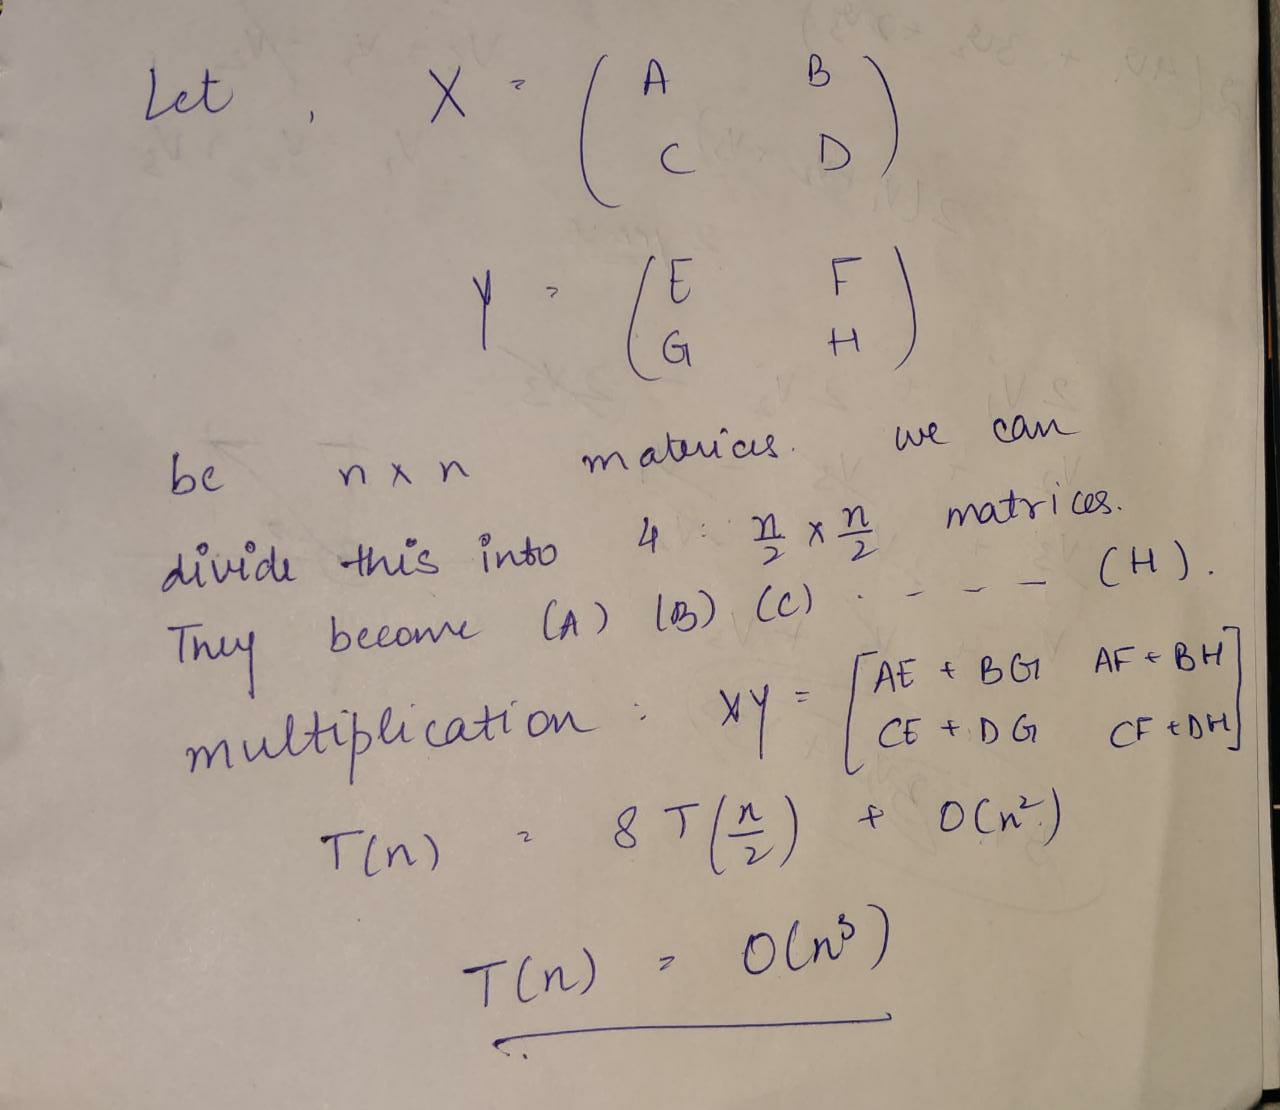 Let , X = ( A B
C D )
Y = ( E F
G H )
be n x n materices. we can
divide this into 4 : n/2 x n/2 matrices.
They become (A) (B) (C) . - - - - (H).
multiplication : XY = [ AE + BG AF + BH
CE + DG CF + DH ]
T(n) = 8 T(n/2) + O(n²)
T(n) = O(n³)